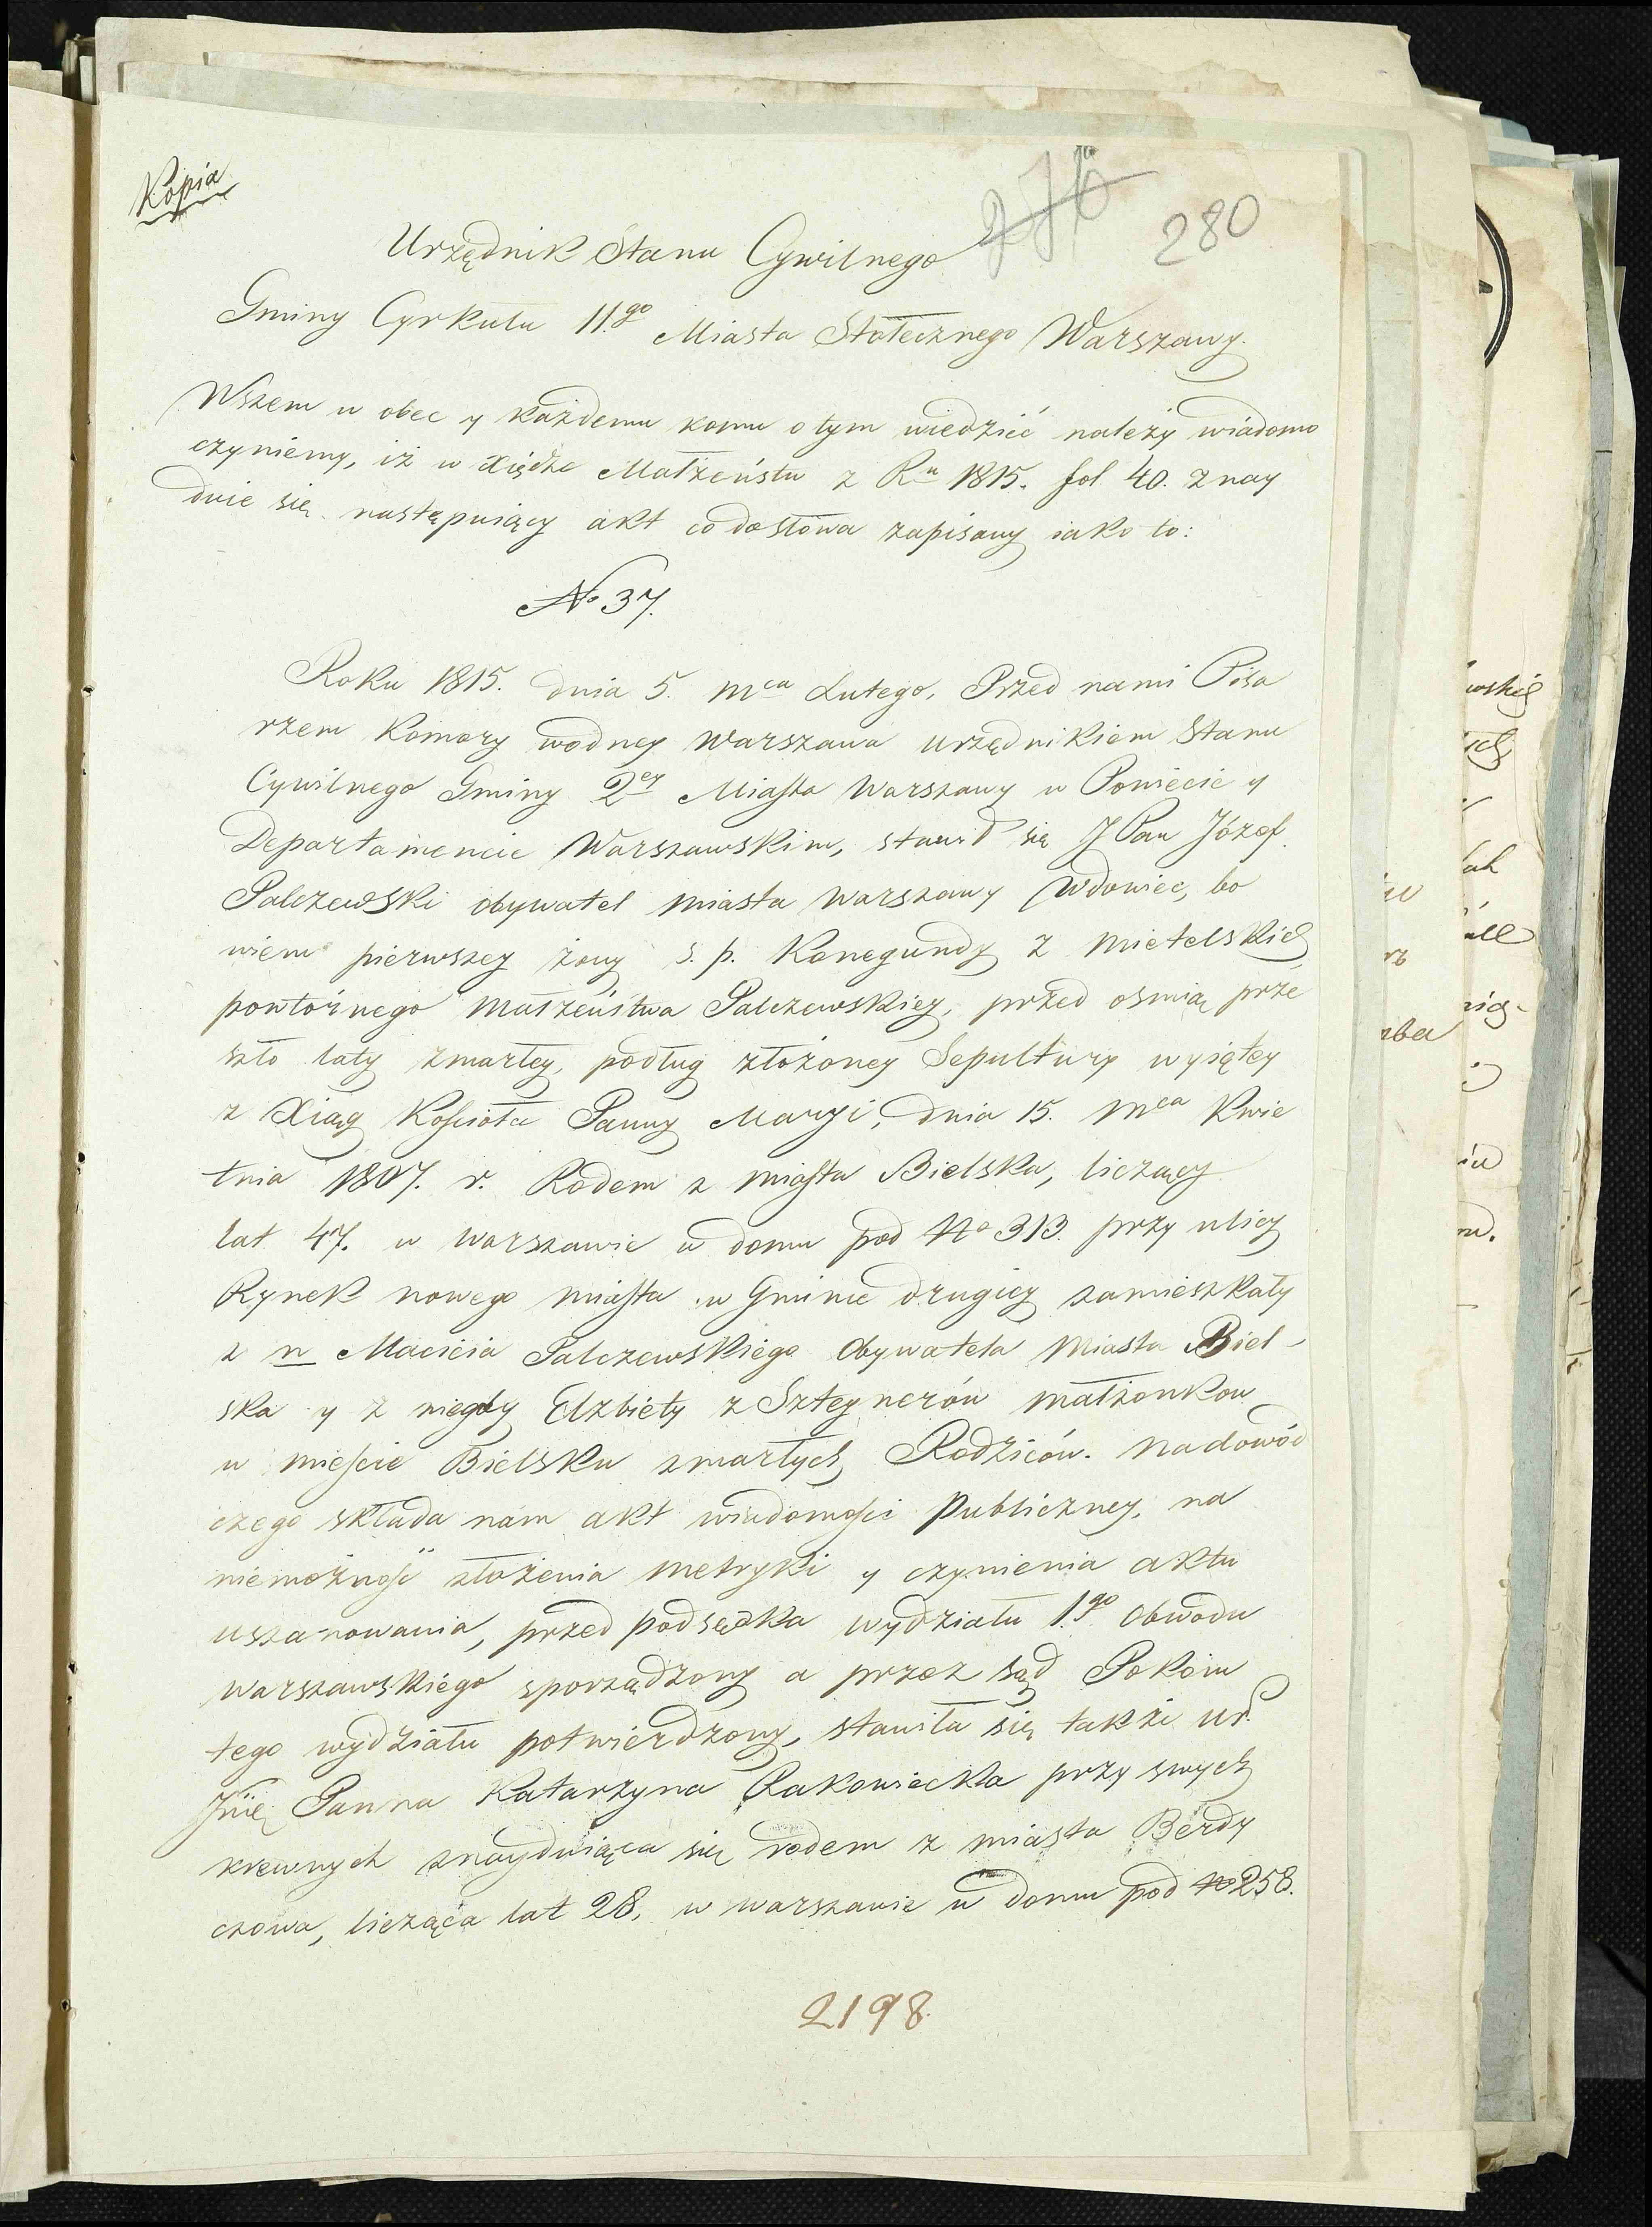 Kopia
276
280
Urzędnik Stanu Cywilnego
Gminy Cyrkułu 11.go Miasta Stołecznego Warszawy.
Wszem w obec y każdemu komu o tym wiedzieć należy wiadomo
czyniemy, iż w Xiędze Małżeństw z Ru 1815. fol 40. znay
duie się następuiący akt co do słowa zapisany iako to:
No 37.
Roku 1815. dnia 5. mca Lutego. Przed nami Pisa
rzem Komory wodney Warszawa urzędnikiem Stanu
Cywilnego Gminy 2ey Miasta Warszawy w Powiecie y
Departamencie Warszawskim, stawił się J Pan Józef
Palczewski obywatel miasta Warszawy Wdowiec, bo
wiem pierwszey żony ś. p. Konegundy z Mietelskich
powtórnego małżeństwa Palczewskiey, przed ośmią prze
szło laty zmarłey, podług złożoney Sepultury wyiętey
z Xiąg Kościoła Panny Maryi, dnia 15. mca Kwie
tnia 1807. r. Rodem z miasta Bielska, liczący
lat 47. w Warszawie w domu pod No 313. przy ulicy
Rynek nowego miasta w Gminie drugiey zamieszkały
z n Macieia Palczewskiego Obywatela Miasta Biel-
ska y z niegdy Elzbiety z Szteynerów małżonkow
w mieście Bielsku zmarłych Rodziców. Na dowód
czego składa nam akt wiadomości Publiczney, na
niemożność złożenia metryki y czynienia aktu
uszanowania, przed podsędka wydziału 1.go Obwodu
Warszawskiego sporządzony a przez Sąd Pokoiu
tego wydziału potwierdzony, stawiła się także Ur.
Panna Katarzyna Rakowiecka przy swych
krewnych znayduiąca się rodem z miasta Berdy
czowa, licząca lat 28, w Warszawie w domu pod No 258.
2198.